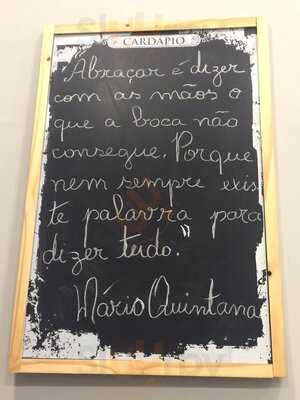 CARDÁPIO
"Abraçar é dizer
com as mãos o
que a boca não
consegue. Porque
nem sempre exis
te palavra para
dizer tudo."
Mário Quintana